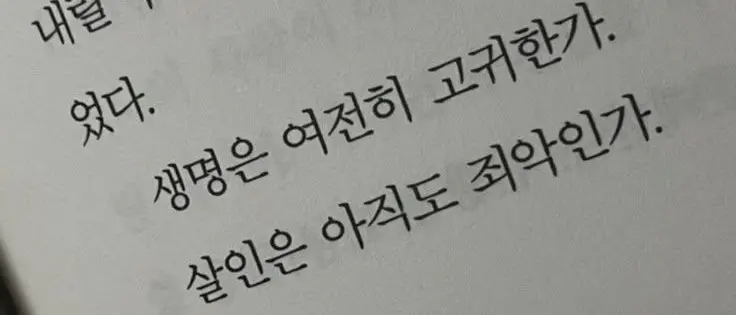 내달
었다.
생명은 여전히 고귀한가.
살인은 아직도 죄악인가.